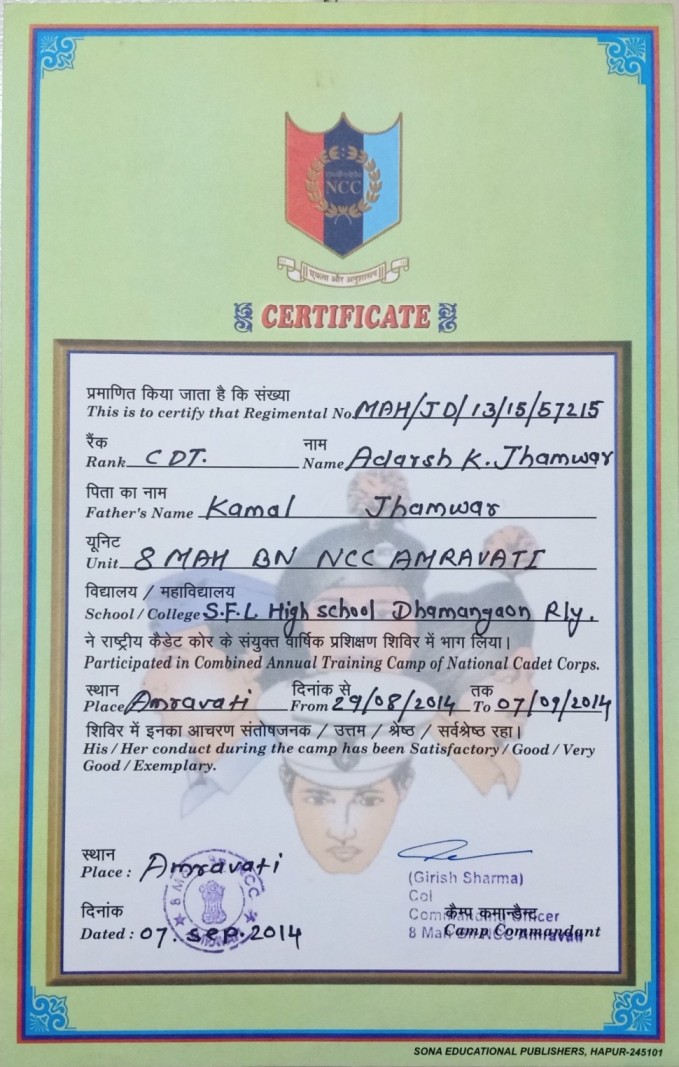 NCC
एकता और अनुशासन
CERTIFICATE
प्रमाणित किया जाता है कि संख्या
This is to certify that Regimental No. MAH/JD/13/15/57215
रैंक नाम
Rank CDT. Name Adarsh K. Jhamwar
पिता का नाम
Father's Name Kamal Jhamwar
यूनिट
Unit 8 MAH BN NCC AMRAVATI
विद्यालय / महाविद्यालय
School / College S.F.L High school Dhamangaon Rly.
ने राष्ट्रीय कैडेट कोर के संयुक्त वार्षिक प्रशिक्षण शिविर में भाग लिया।
Participated in Combined Annual Training Camp of National Cadet Corps.
स्थान दिनांक से तक
Place Amravati From 29/08/2014 To 07/09/2014
शिविर में इनका आचरण संतोषजनक / उत्तम / श्रेष्ठ / सर्वश्रेष्ठ रहा।
His / Her conduct during the camp has been Satisfactory / Good / Very
Good / Exemplary.
स्थान
Place : Amravati
दिनांक
Dated : 07. Sep. 2014
(Girish Sharma)
Col
Commanding Officer
8 Mah Bn NCC Amravati
कैम्प कमान्डैन्ट
Camp Commandant
SONA EDUCATIONAL PUBLISHERS, HAPUR-245101